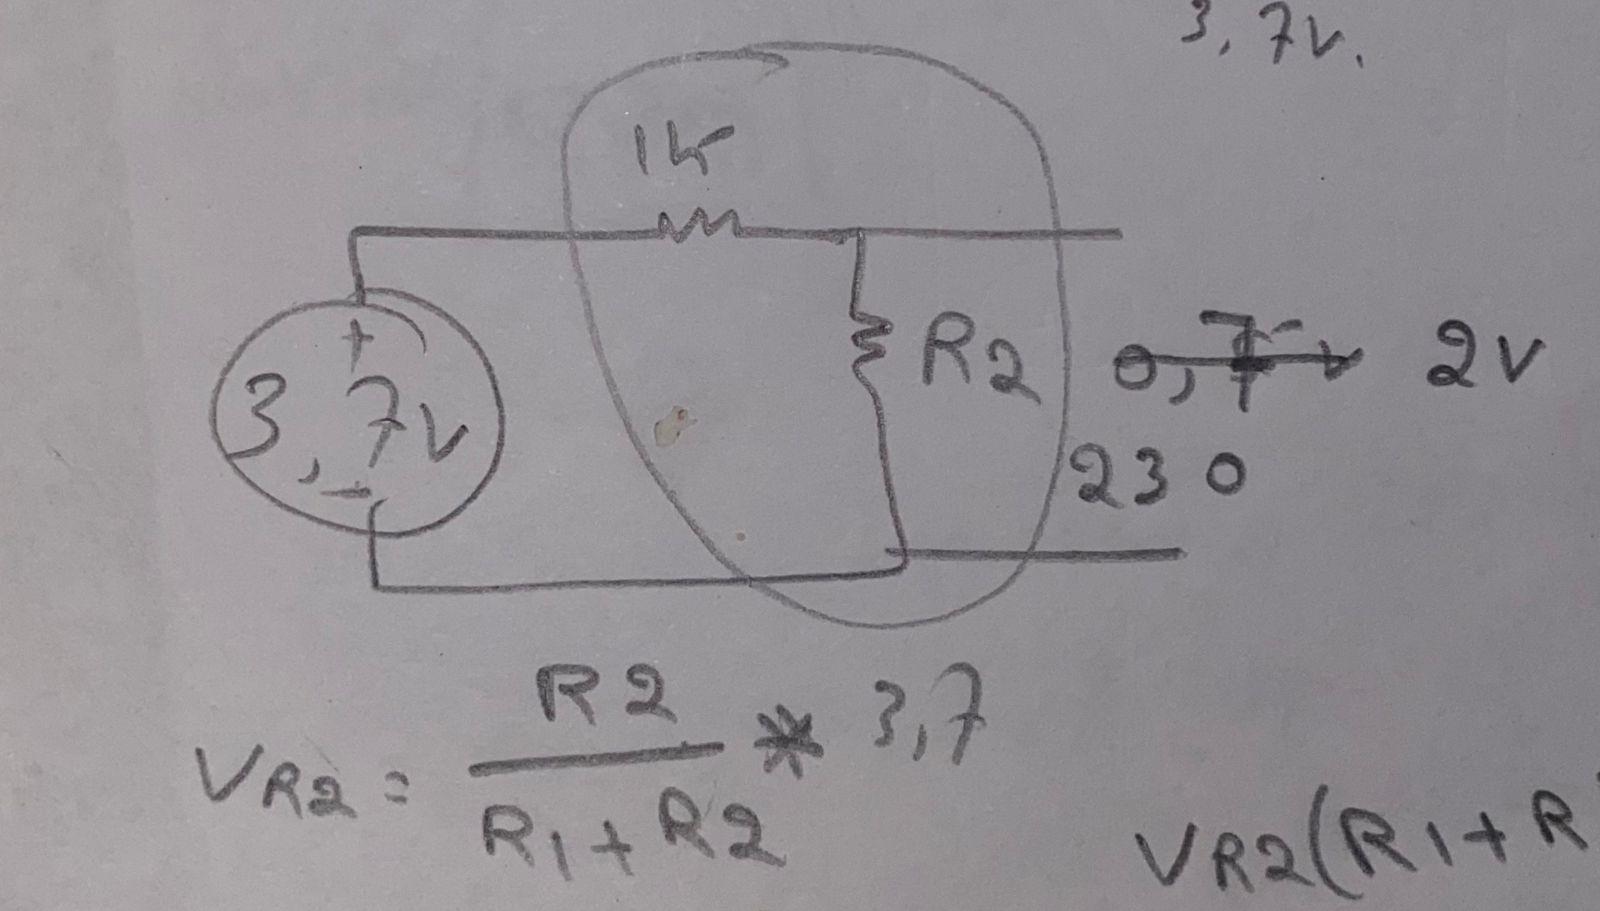 3,7v.
1k
+
3,7v
-
R2
0,7v 2v
230
VR2 = R2 / R1+R2 * 3,7
VR2(R1+R